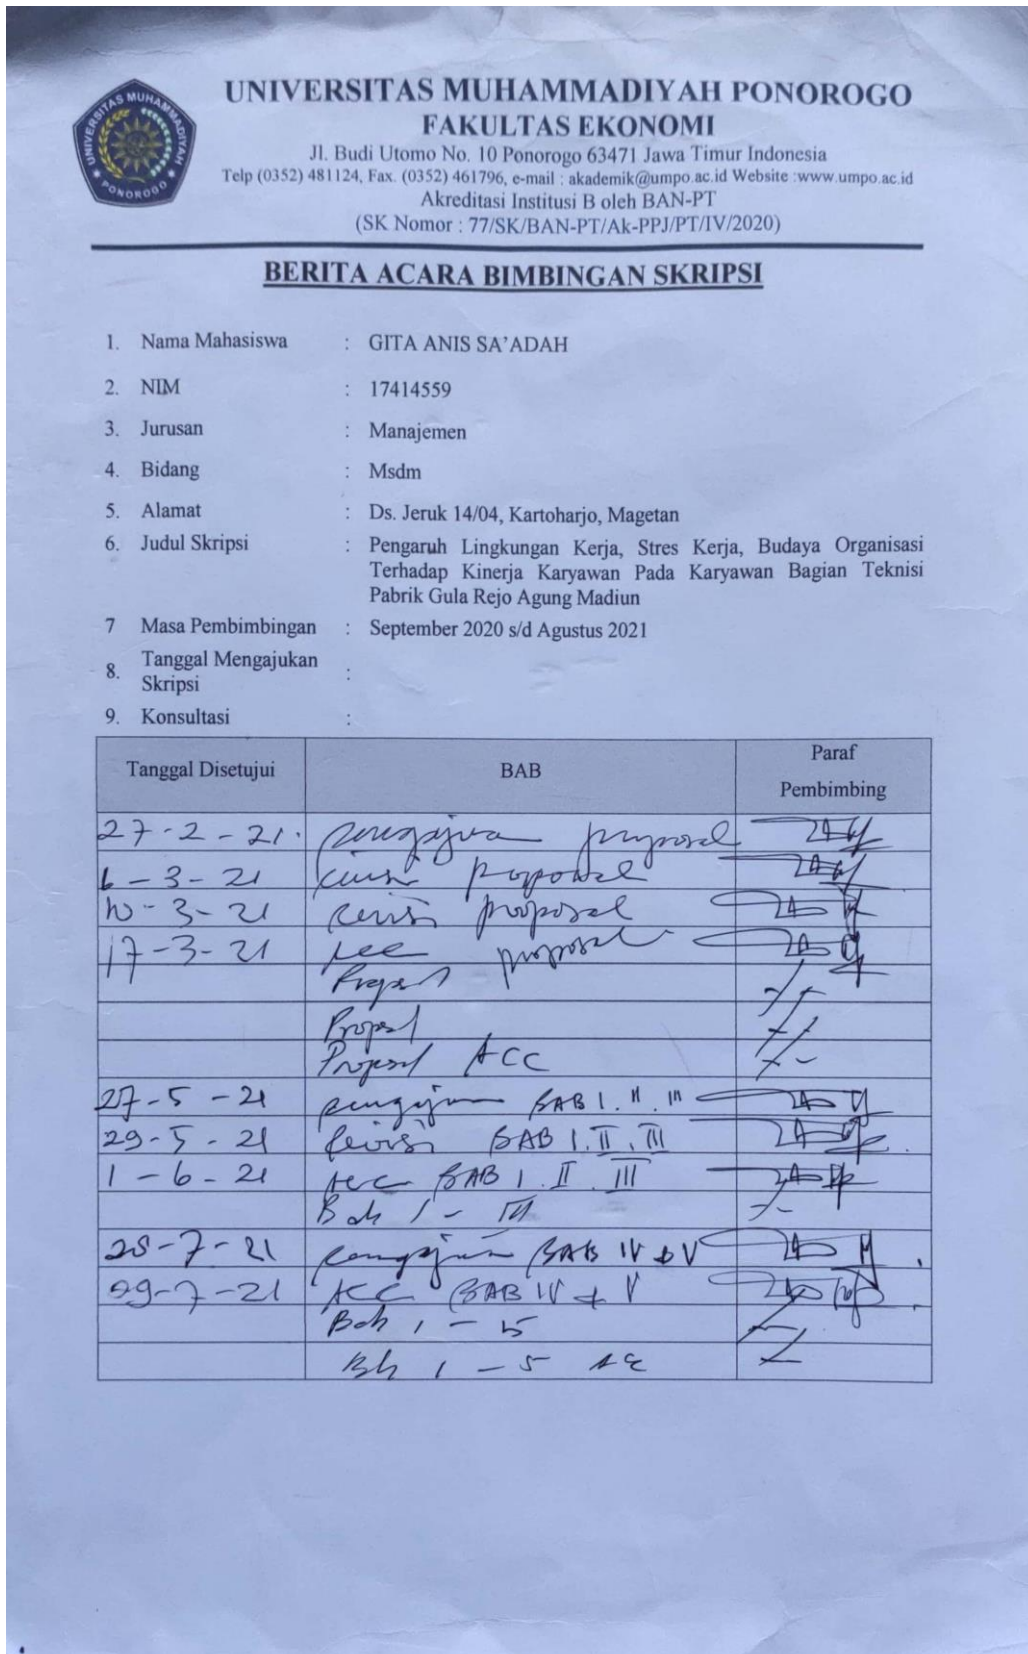 UNIVERSITAS MUHAMMADIYAH PONOROGO
FAKULTAS EKONOMI
Jl. Budi Utomo No. 10 Ponorogo 63471 Jawa Timur Indonesia
Telp (0352) 481124, Fax. (0352) 461796, e-mail : akademik@umpo.ac.id Website :www.umpo.ac.id
Akreditasi Institusi B oleh BAN-PT
(SK Nomor : 77/SK/BAN-PT/Ak-PPJ/PT/IV/2020)
UNIVERSITAS MUHAMMADIYAH
PONOROGO
BERITA ACARA BIMBINGAN SKRIPSI
1. Nama Mahasiswa : GITA ANIS SA'ADAH
2. NIM : 17414559
3. Jurusan : Manajemen
4. Bidang : Msdm
5. Alamat : Ds. Jeruk 14/04, Kartoharjo, Magetan
6. Judul Skripsi : Pengaruh Lingkungan Kerja, Stres Kerja, Budaya Organisasi
Terhadap Kinerja Karyawan Pada Karyawan Bagian Teknisi
Pabrik Gula Rejo Agung Madiun
7 Masa Pembimbingan : September 2020 s/d Agustus 2021
8. Tanggal Mengajukan
Skripsi :
9. Konsultasi :
Tanggal Disetujui BAB Paraf
Pembimbing
27-2-21. proposal
6-3-21 proposal
10-3-21 revisi proposal
17-3-21 acc proposal
Proposal ACC
27-5-21 BAB I. II. III
29-5-21 Revisi BAB I. II. III
1-6-21 acc BAB I. II. III
Bab 1 - III
28-7-21 BAB IV & V
29-7-21 ACC BAB IV & V
Bab 1 - 5
Bab 1 - 5